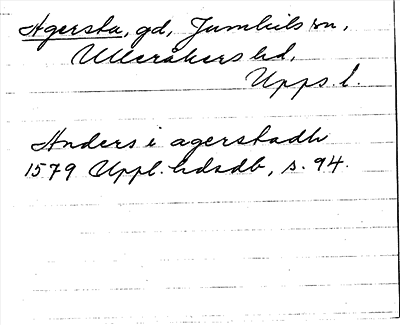 Agersta, gd, Jumkils sn,
Ulleråkers hd,
Upps. l.
Anders i agerstadh
1579 Uppl. hdsdb, s. 94.